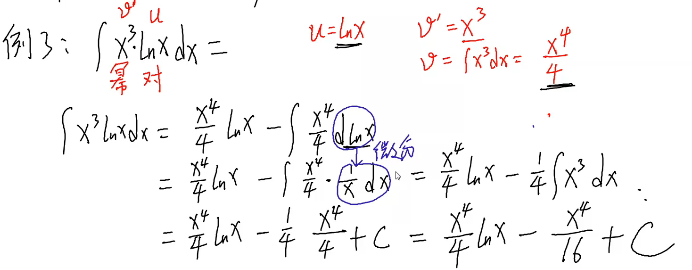 v' u
例3: ∫x³·lnx dx = u=lnx v'=x³
幂 对 v=∫x³dx= x⁴/4
∫x³lnxdx= x⁴/4 lnx - ∫ x⁴/4 dlnx
= x⁴/4 lnx - ∫ x⁴/4 · 1/x dx = x⁴/4 lnx - 1/4 ∫x³ dx
= x⁴/4 lnx - 1/4 x⁴/4 + C = x⁴/4 lnx - x⁴/16 + C